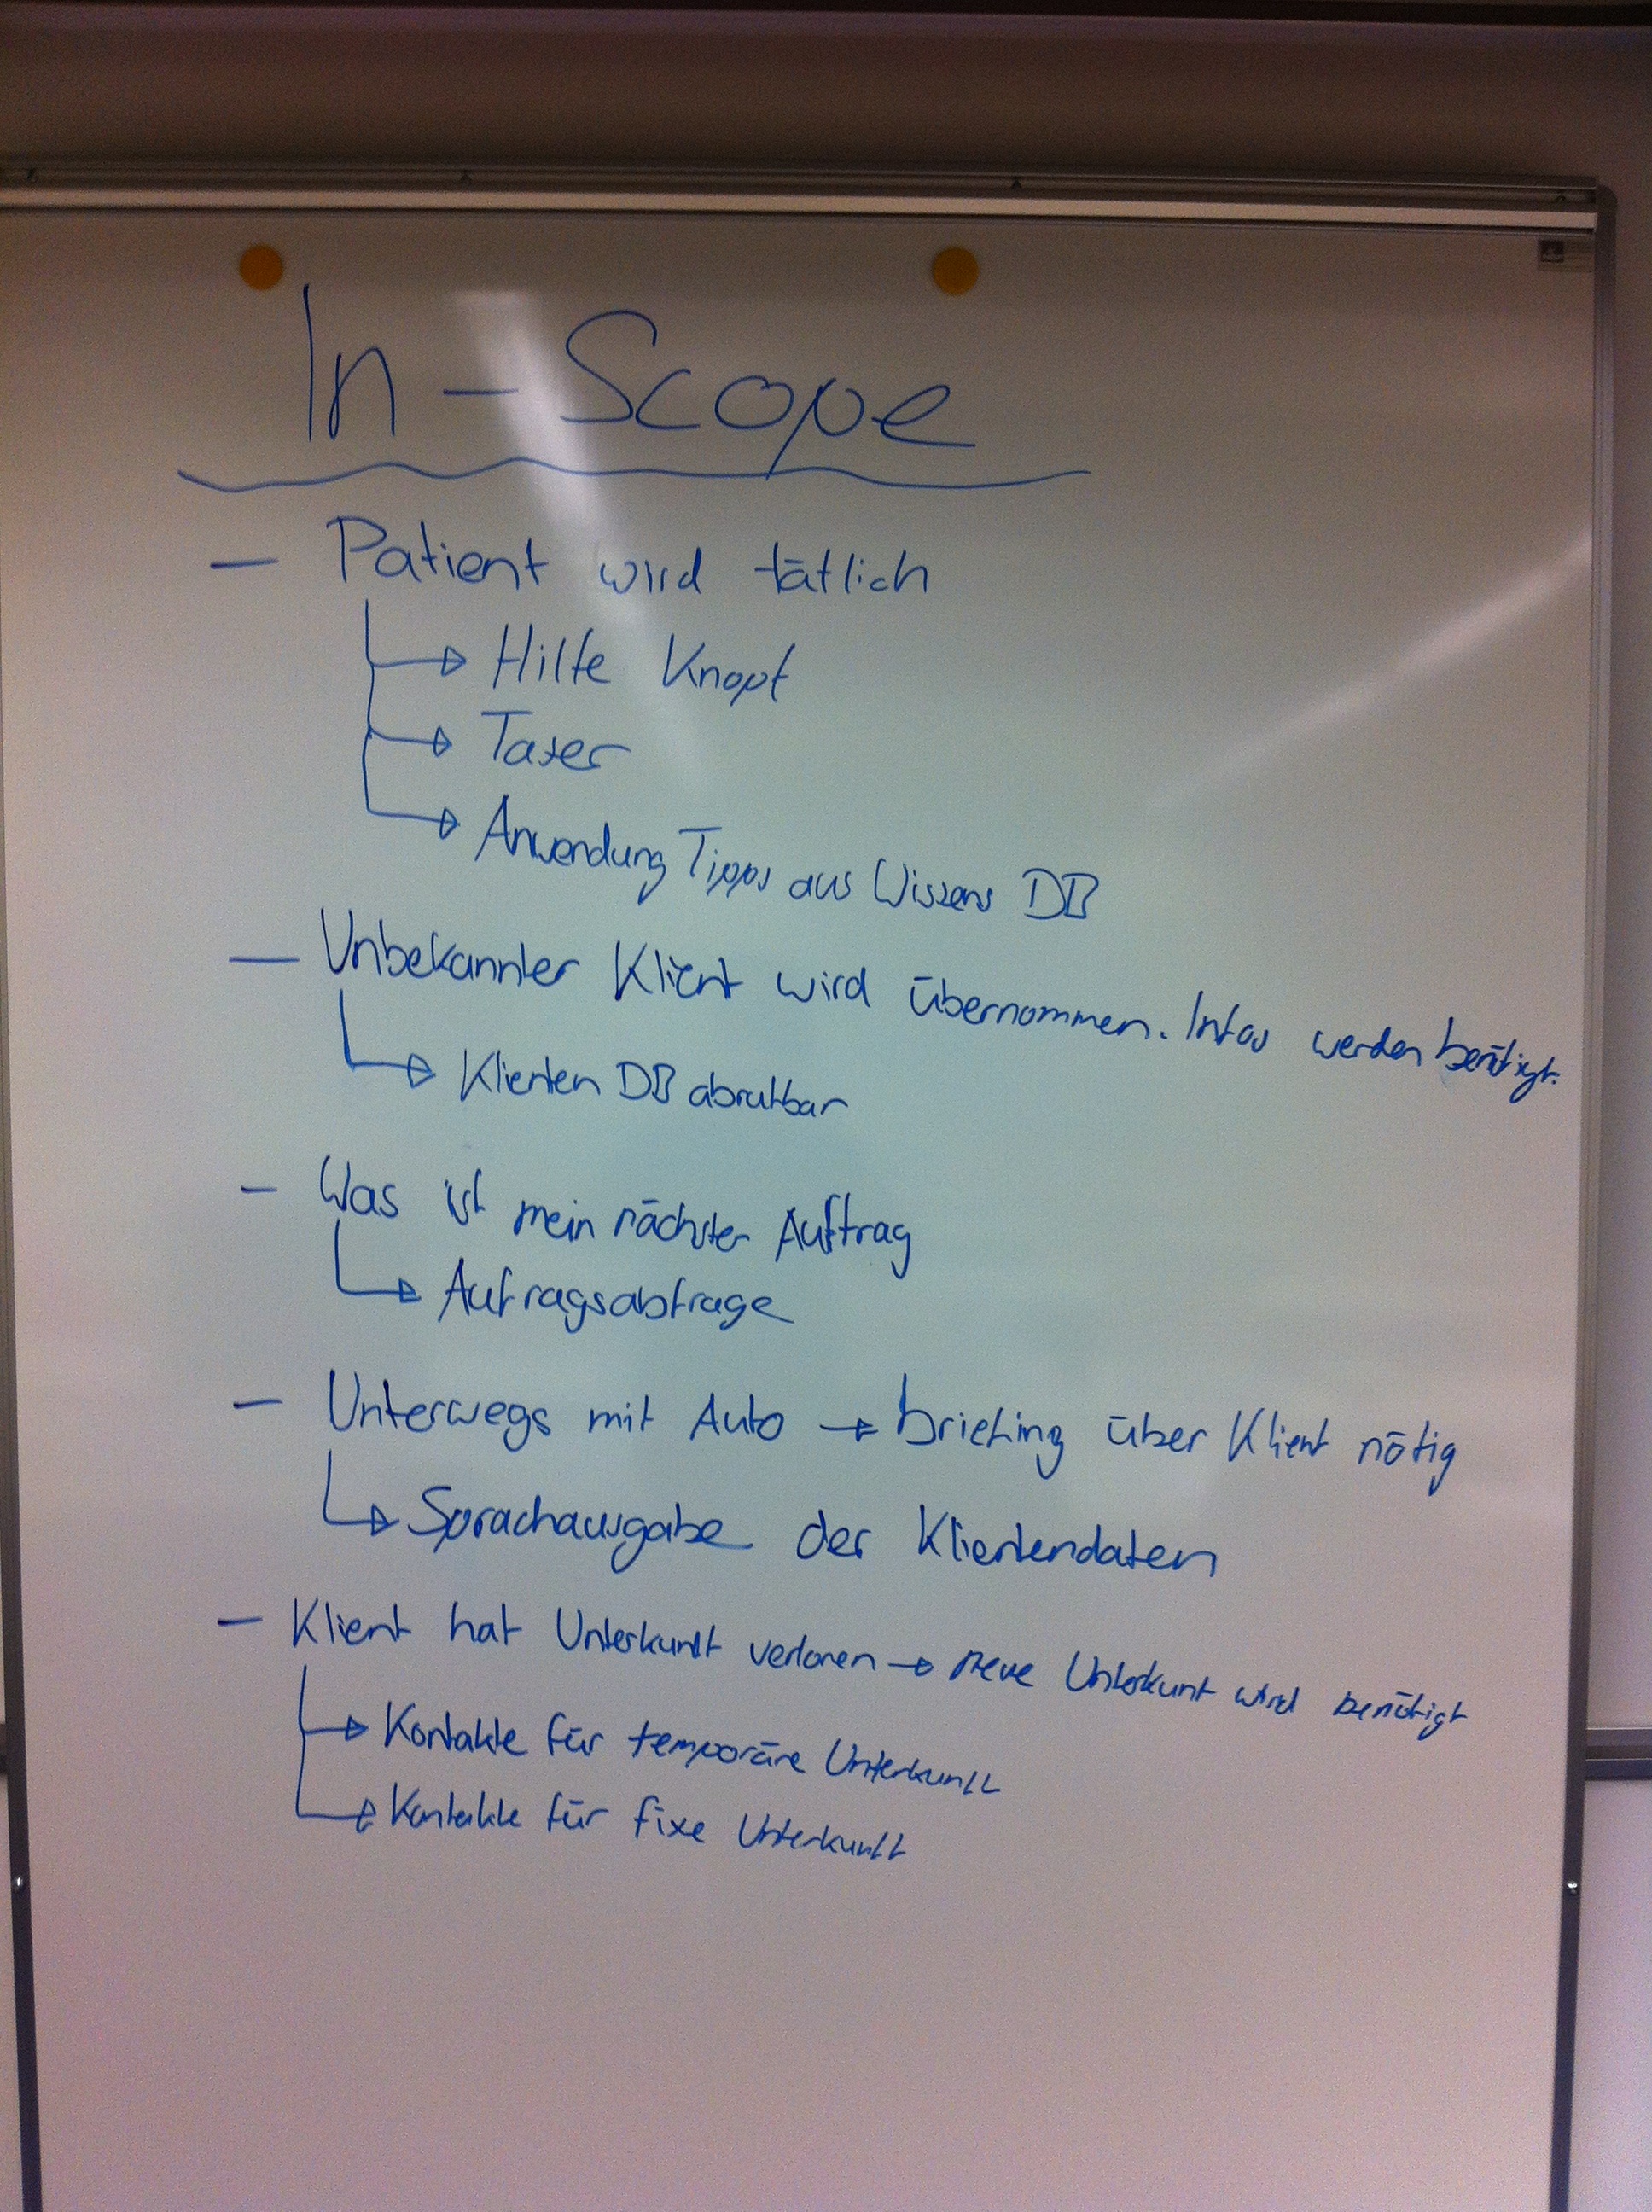 In-Scope
– Patient wird tätlich
→ Hilfe Knopf
→ Taser
→ Anwendung Tipps aus Wissens DB
– Unbekannter Klient wird übernommen. Infos werden benötigt.
→ Klienten DB abrufbar
– Was ist mein nächster Auftrag
→ Auftragsabfrage
– Unterwegs mit Auto → briefing über Klient nötig
→ Sprachausgabe der Klientendaten
– Klient hat Unterkunft verloren → neue Unterkunt wird benötigt
→ Kontakte für temporäre Unterkunft
→ Kontakte für fixe Unterkunft